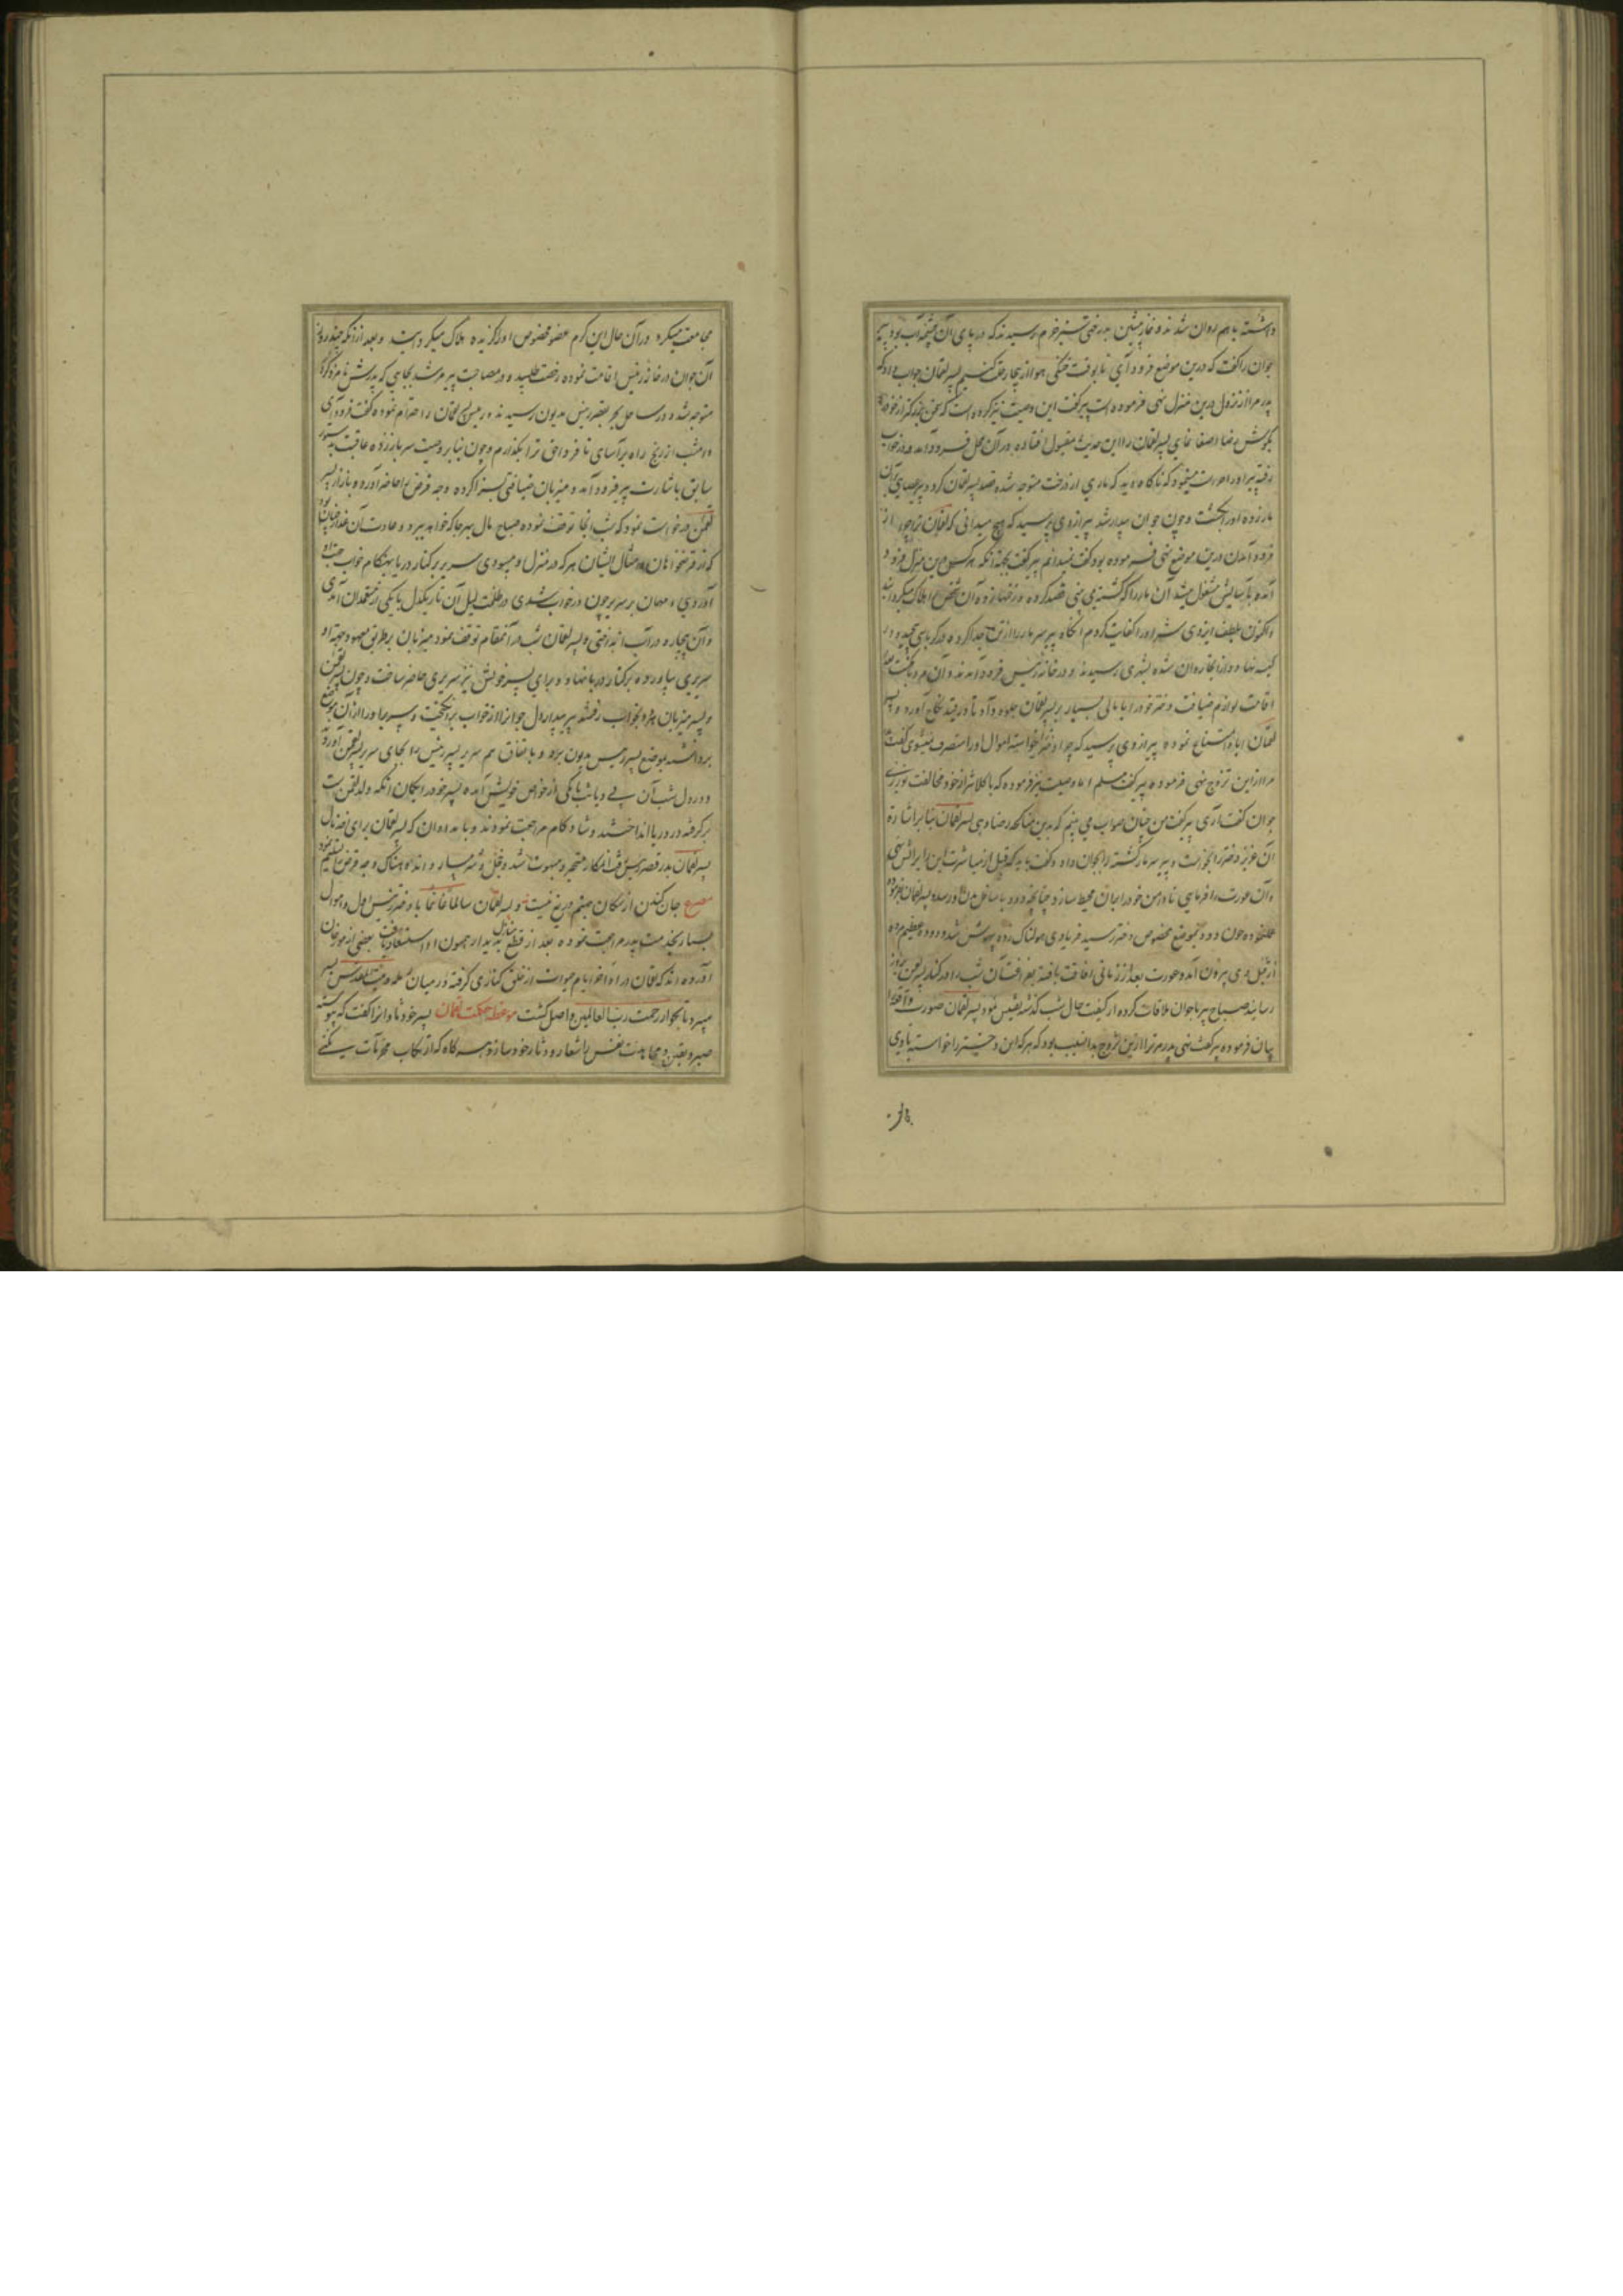 داشته باهم روان شدند و نماز پیشین بدرختی سبز خرم رسیدند که در پای آن چشمه آب بود پیر
جوان را گفت که درین موضع فرود آی تا بوقت خنکی هوا از اینجا رحلت کنیم پسر لقمان جواب داد که
پدر مرا از نزول درین منزل نهی فرموده است پیر گفت این وصیت نیز کرده است که سخن بزرگتر از خود
بگوش رضا اصغا نمای پسر لقمان را این حدیث مقبول افتاده در آن محل فرود آمد و در خواب
رفته پیر او را حراست مینمود که ناگاه دید که ماری از درخت متوجه شده قصد پسر لقمان کرد پیر عصای بر آن
مار زده او را بکشت و چون جوان بیدار شد پیر از وی پرسید که هیچ میدانی که لقمان ترا چرا از
فرود آمدن درین موضع نهی فرموده بود گفت نمیدانم پیر گفت بجهة آنکه هر کس درین منزل فرود
آمده بآسایش مشغول میشد آن مار را که کشته می بینی قصد کرده و زخمها زده آن شخص را هلاک میکردانید
و اکنون بلطف ایزدی شر او را کفایت کردم آنگاه پیر سر مار را از تن جدا کرده در کرباسی پیچید و در
کیسه نهاد و از آنجا روان شده بشهری رسیدند و در خانه رئیس فرود آمدند و آن مرد
اقامت لوازم ضیافت دختر خود را با مالی بسیار بر پسر لقمان جلوه داد تا در قید نکاح آورد و پسر
لقمان ابا و امتناع نموده پیر از وی پرسید که چرا دختر نخواسته اموال او را متصرف نمیشوی گفت پدر
مرا از این تزوج نهی فرموده پیر گفت مسلم اما وصیت نیز فرموده که با کلانتر از خود مخالفت نورزی
جوان گفت آری پیر گفت من چنان صواب می بینم که بدین مناکحه رضا دهی پسر لقمان بنا بر اشارة
آن عزیز دختر را بخواست و پیر سر مار کشته را بجوان داد و گفت باید که قبل از مباشرت این را بر آتش نهی
و آن عورت را فرمایی تا دامن خود را بر آن محیط سازد چنانچه دود باسافل بدن او رسد پسر لقمان بفرموده
عمل نموده چون دود بموضع مخصوص دختر رسید فریادی هولناک زده بیهوش شد و دوده عظیم مرده
از قبل وی بیرون آمد و عورت بعد از زمانی افاقت یافته بقیه آن شب را در کنار پسر لقمن بروز
رسانید صباح پیر با جوان ملاقات کرده از کیفیت حال شب گذشته تفتیش نمود پسر لقمان صورت واقعه
بیان فرموده پیر گفت نهی پدر مر ترا ازین تزوج بدان سبب بود که هر که این دختر را خواسته با وی
مجامعت میکرد در آن حال این کرم عضو مخصوص او را گزیده هلاک میکردانید و بعد از آنکه چند روز
آن جوان در خانه رئیس اقامت نموده رخصت طلبید و در مصاحبت پیر مرشد بجایی که پدرش نامزد کرد
متوجه شد و در ساحل بحر بقصر رئیس مدیون رسیدند و رئیس پسر لقمان را احترام نموده گفت فرود آی
و امشب از رنج راه برآسای تا فردا حق ترا بگذارم و چون بنا بر وصیت پدر سر باز زده عاقبت بدستور
سابق باشارت پیر فرود آمد و میزبان ضیافتی بسزا کرده وجه قرض را حاضر آورد و باز از پسر
لقمن درخواست نمود که شب آنجا توقف نموده صباح مال بهر جا که خواهد ببرد و عادت آن غدار چنان بود
که از قرضخواهان و امثال ایشان هر که در منزل او میبودی سریری بر کنار دریا بهنگام خواب جهت او
آوردی و مهمان بر سریر چون در خواب شدی در ظلمت لیل آن تاریکدل با یکی از معتمدان آمدی
و آن بیچاره در آب انداختی و پسر لقمان شب در آن مقام توقف نمود میزبان بر طریق معهود جهة او
سریری بیاورده بر کنار دریا نهاد و برای پسر خویش نیز سریری حاضر ساخت و چون پسر لقمن
و پسر میزبان هر دو بخواب رفتند پیر بیدار دل جوان را از خواب برانگیخت و سریر او را از آن موضع
برداشته بموضع پسر رئیس مدیون برد و باتفاق هم سریر پسر رئیس را بجای سریر پسر لقمن آورد
و در دل شب آن بی دیانت با یکی از خواص خویش آمده پسر خود را بگمان آنکه ولد لقمن است
برگرفته در دریا انداختند و شادکام مراجعت نمودند و بامدادان که پسر لقمان برای اخذ مال
پسر لقمان بدر قصر رئیس رفت آن مکار متحیر و مبهوت شد و خجل و شرمسار و اندوهناک وجه قرض تسلیم نمود
مصرع جان کندن از مکان جهنم دریغ نیست و پسر لقمان سالما غانما با دختر رئیس اول و اموال
بسیار بخدمت پدر مراجعت نموده بعد از قطع منازل بدیدار همیون او استسعاد یافت بعضی از مورخان
آورده اند که لقمان در اواخر ایام حیوات از خلق کناری گرفته در میان رمله و بیت المقدس بسر
میبرد تا بجوار رحمت رب العالمین واصل گشت موعظه حکمت لقمان پسر خود تاران را گفت که پیوسته
صبر و یقین و مجاهدت نفس را شعار و دثار خود ساز و هرگاه که از ارتکاب محرمات